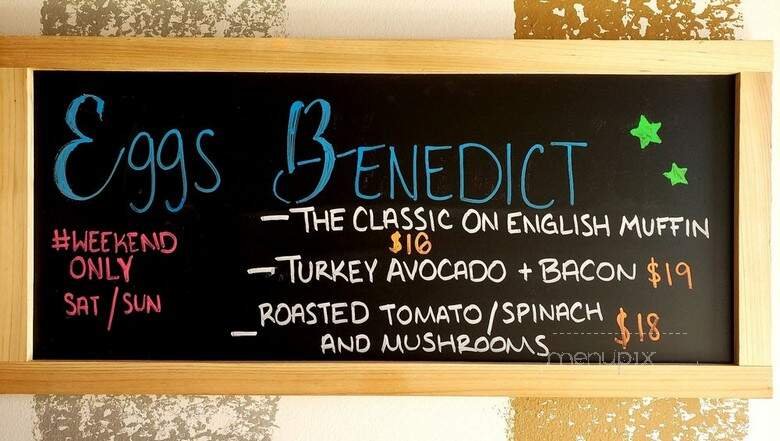 Eggs BENEDICT
#WEEKEND ONLY
SAT/SUN
- THE CLASSIC ON ENGLISH MUFFIN
$16
- TURKEY AVOCADO + BACON $19
- ROASTED TOMATO/SPINACH
AND MUSHROOMS $18
menupix